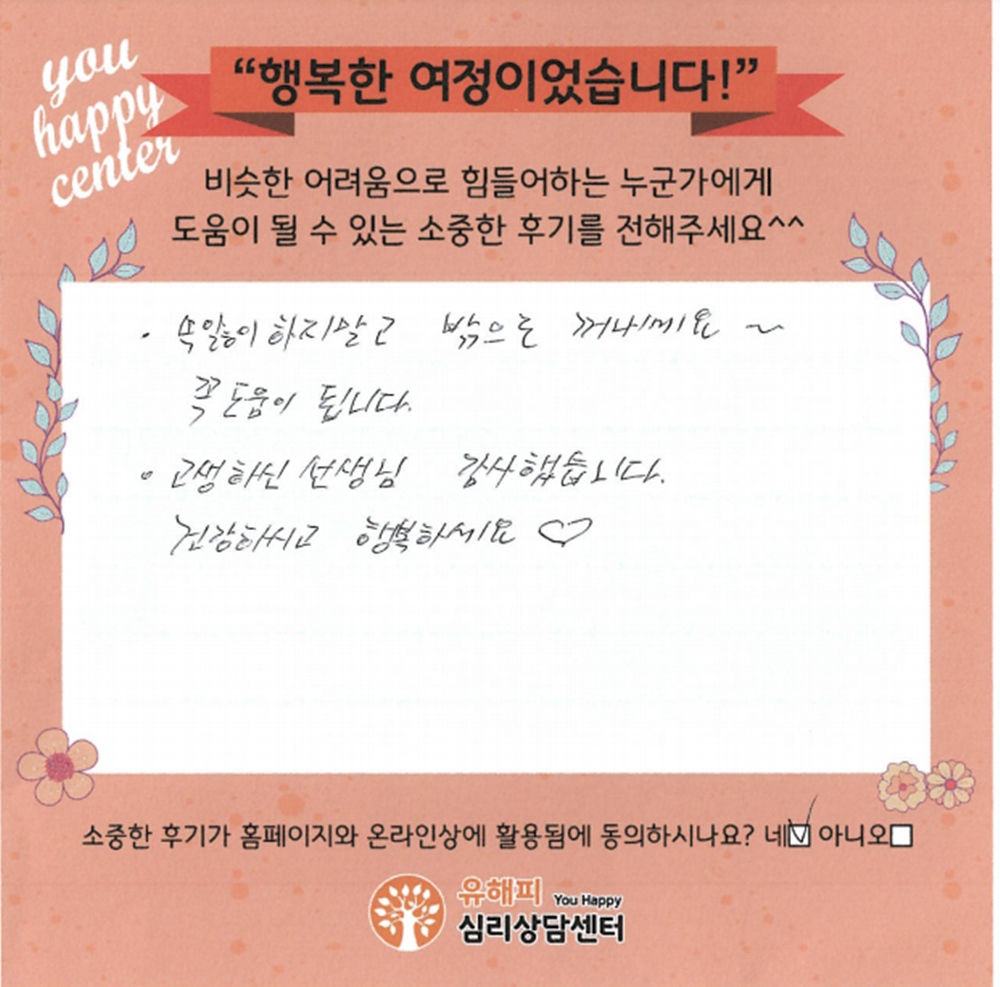 you
happy
center
“행복한 여정이었습니다!”
비슷한 어려움으로 힘들어하는 누군가에게
도움이 될 수 있는 소중한 후기를 전해주세요^^
하지말고 밖으로 꺼내세요 ~
꼭 도움이 됩니다.
고생하신 선생님 감사했습니다.
건강하시고 행복하세요 ♡
소중한 후기가 홈페이지와 온라인상에 활용됨에 동의하시나요? 네☑ 아니오☐
유해피 You Happy
심리상담센터